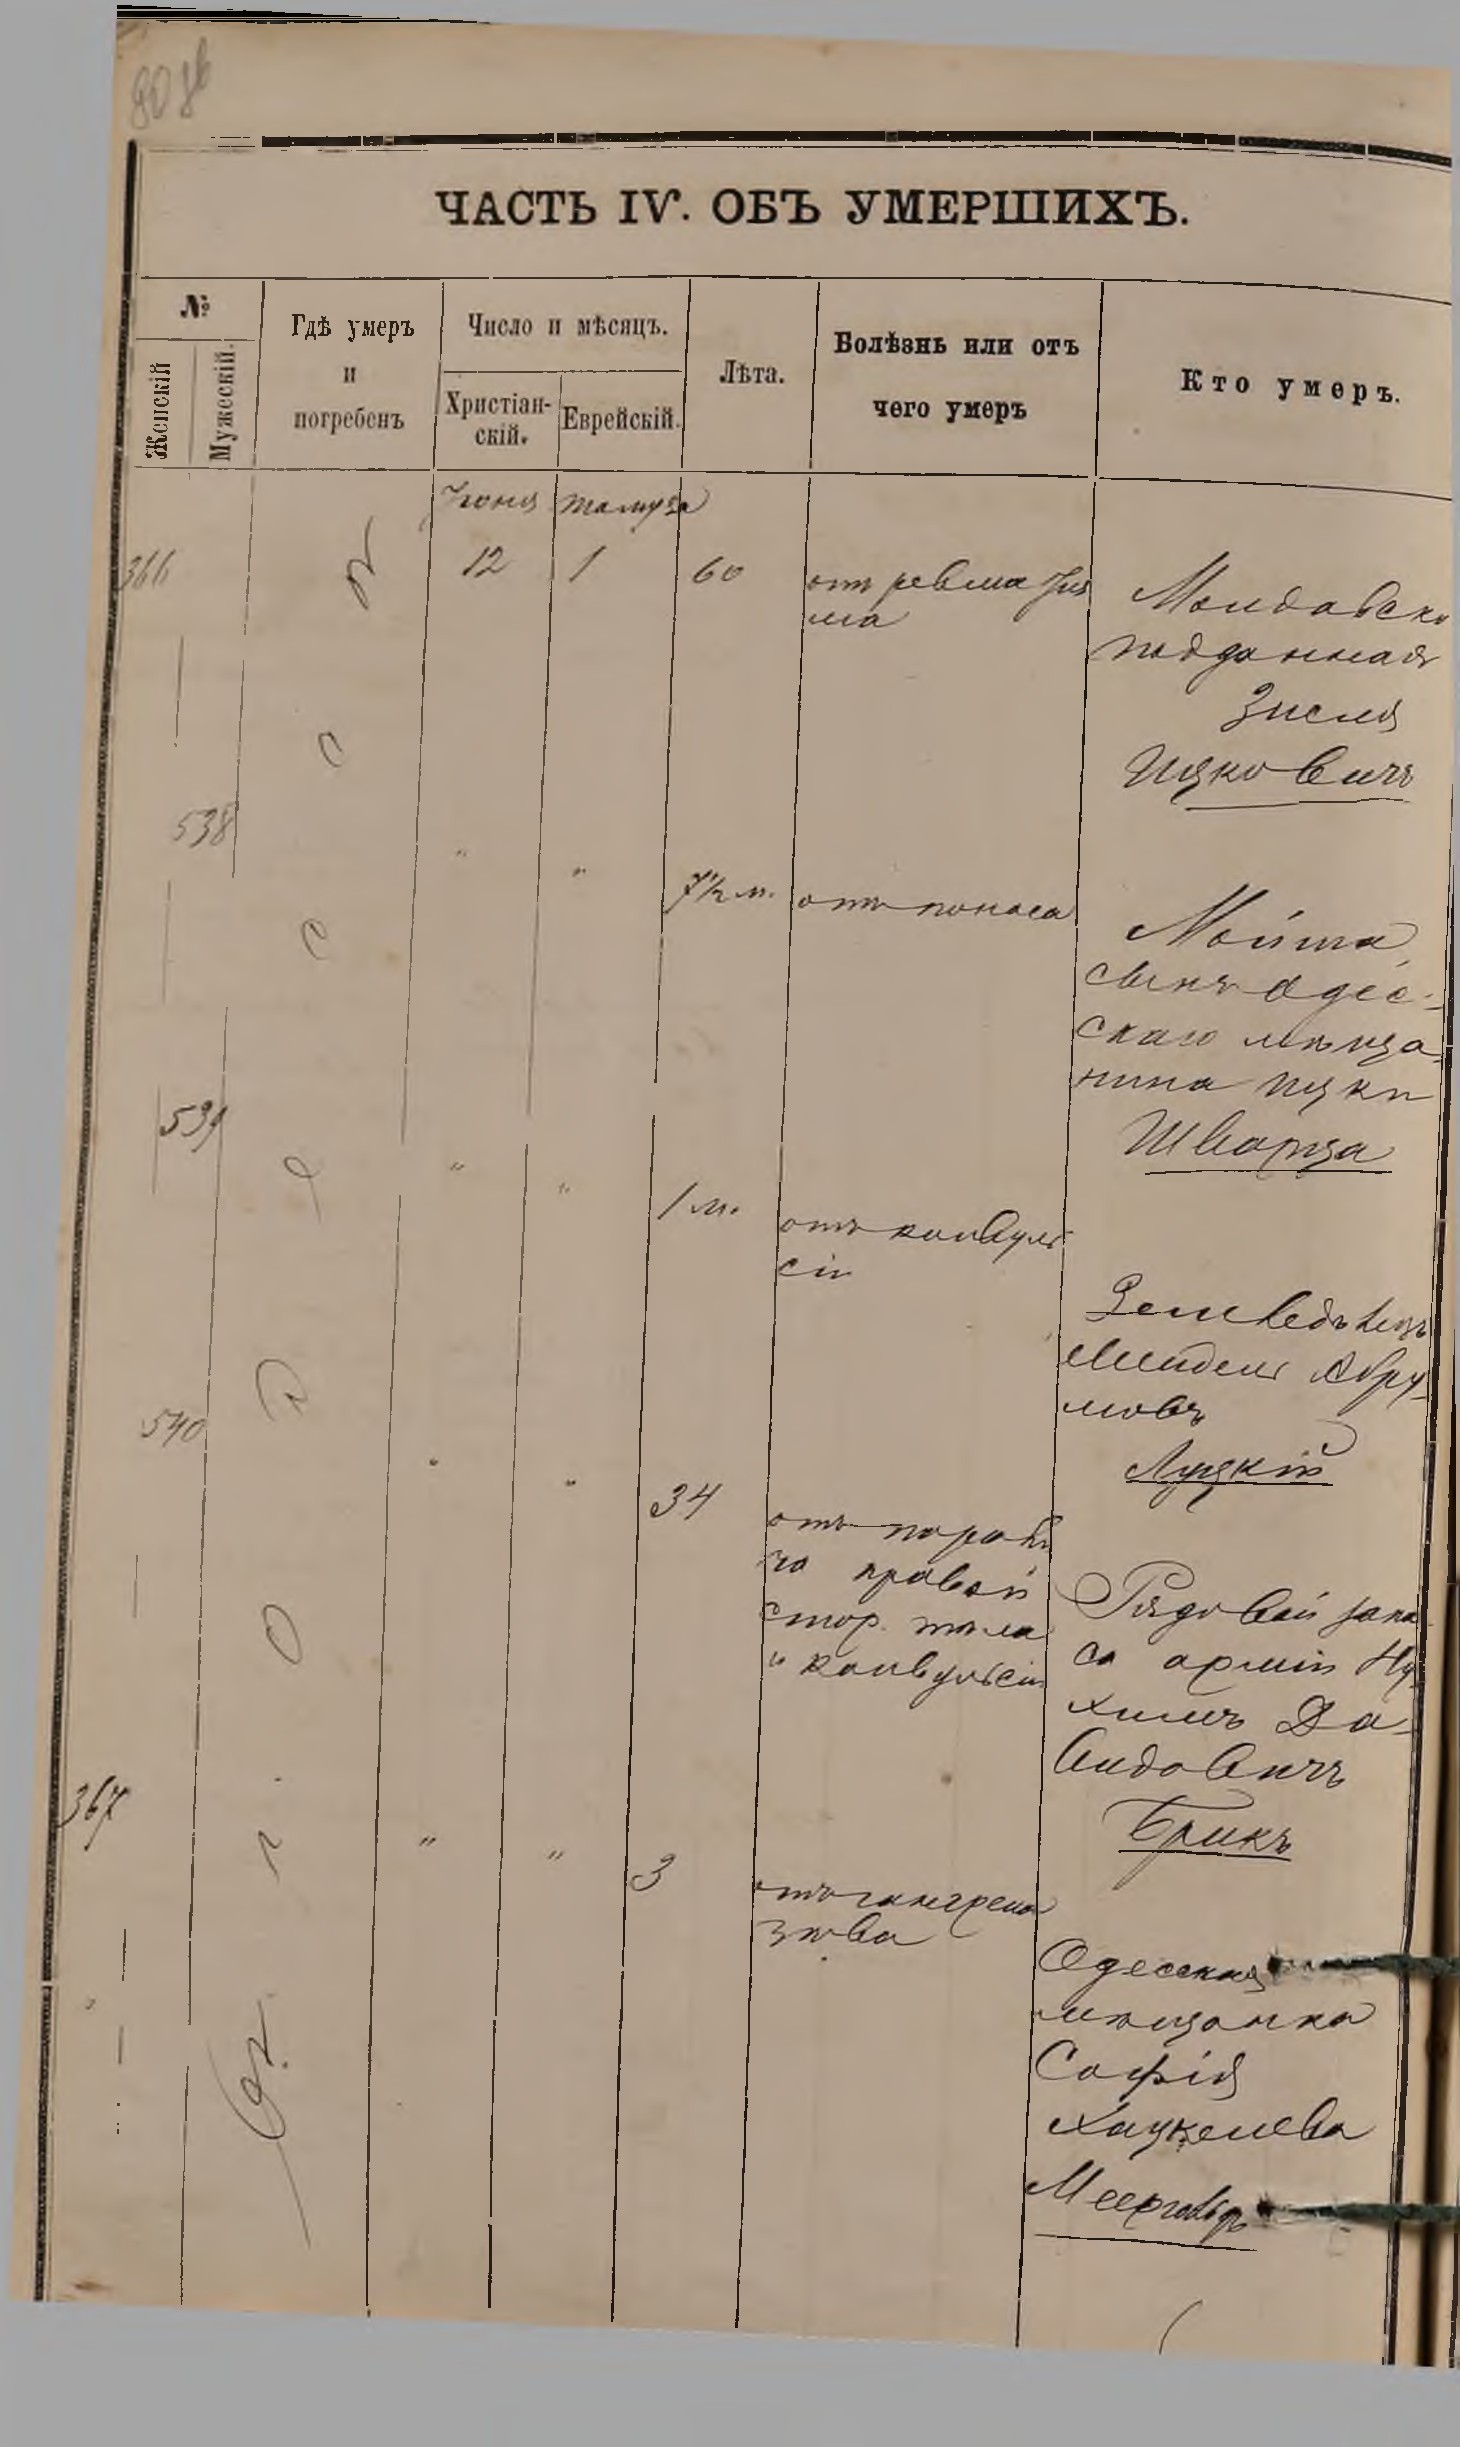 ЧАСТЬ IV. ОБЪ УМЕРШИХЪ.
№
Женскій
Мужескій.
Гдѣ умеръ
и
погребенъ
Число и мѣсяцъ.
Христіан-
скій.
Еврейскій.
Лѣта.
Болѣзнь или отъ
чего умеръ
Кто умеръ.
Въ г. Одессѣ
Іюня Тамуза
366 12 1 60
отъ ревматиз
ма
Молдавск
подданная
Зисля
Ицковичъ
538 " " 7½ м. отъ поноса
Мойша
сынъ Одес-
скаго мѣща
нина Ицки
Шварца
539 " " 1 м.
отъ конвуль
сіи
Земледѣлецъ
Мендель Абру-
мовъ
Луцкій
540 " " 34
отъ парали
ча правой
стор. тѣла
и конвульсіи
Рядовой запа
са арміи Ну-
химъ Да-
видовичъ
Брикъ
367 " " 3
отъ гангрены
зѣва
Одесская
мѣщанка
Софія
Хацкелева